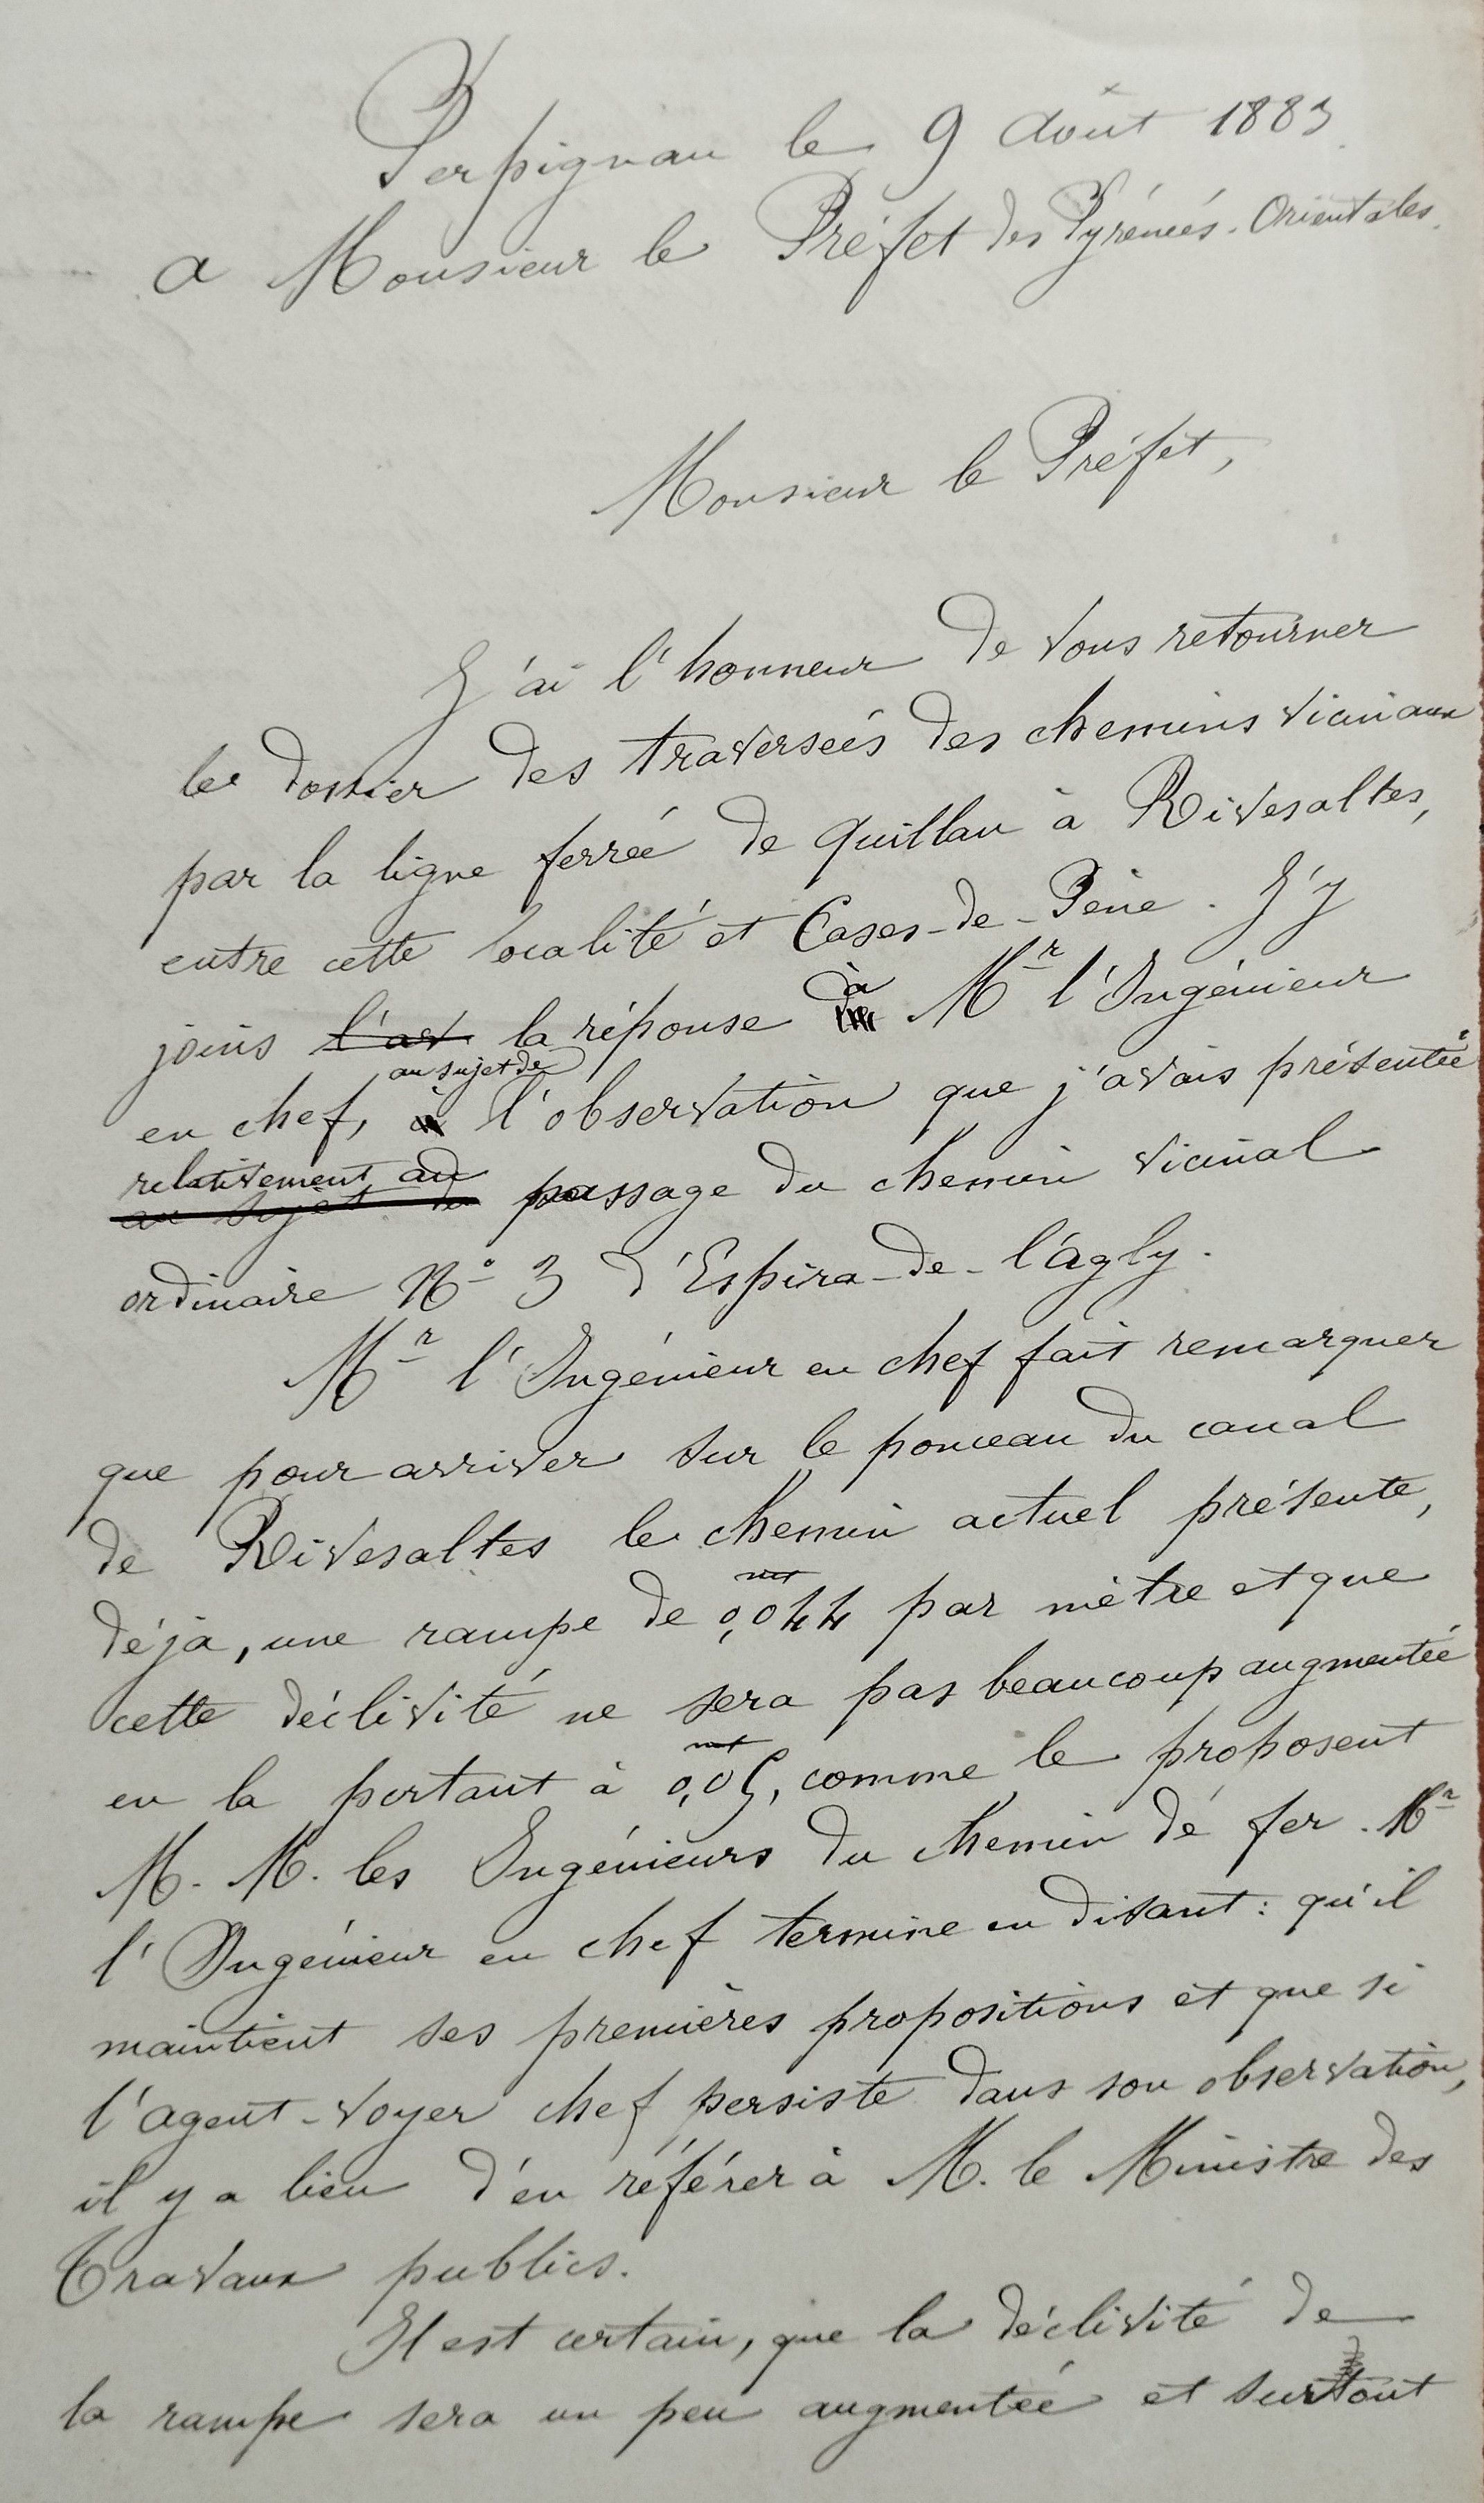 Perpignan le 9 Août 1883
A Monsieur le Préfet des Pyrénées-Orientales.
Monsieur le Préfet,
J'ai l'honneur de vous retourner
le dossier des traversées des chemins vicinaux
par la ligne ferrée de Quillan à Rivesaltes,
entre cette localité et Cases-de-Pène. J'y
joins l'av la réponse de Mr l'Ingénieur
en chef, à au sujet de l'observation que j'avais présentée
relativement au
au sujet du passage du chemin vicinal
ordinaire No 3 d'Espira-de-l'Agly.
Mr l'Ingénieur en chef fait remarquer
que pour arriver sur le ponceau du canal
de Rivesaltes le chemin actuel présente,
déjà, une rampe de 0,044 par mètre et que
cette déclivité ne sera pas beaucoup augmentée
en la portant à 0,05, comme le proposent
M. M. les Ingénieurs du chemin de fer. Mr
l'Ingénieur en chef termine en disant: qu'il
maintient ses premières propositions et que si
l'agent-voyer chef persiste dans son observation,
il y a lieu d'en référer à M. le Ministre des
Travaux publics.
Il est certain, que la déclivité de
la rampe sera un peu augmentée et surtout